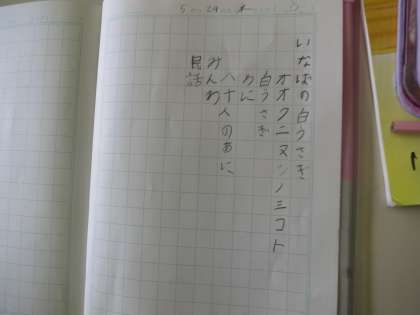 5 29 木
いなばの白うさぎ
オオクニヌシノミコト
白うさぎ
わに
八十人のあに
みんわ
民話